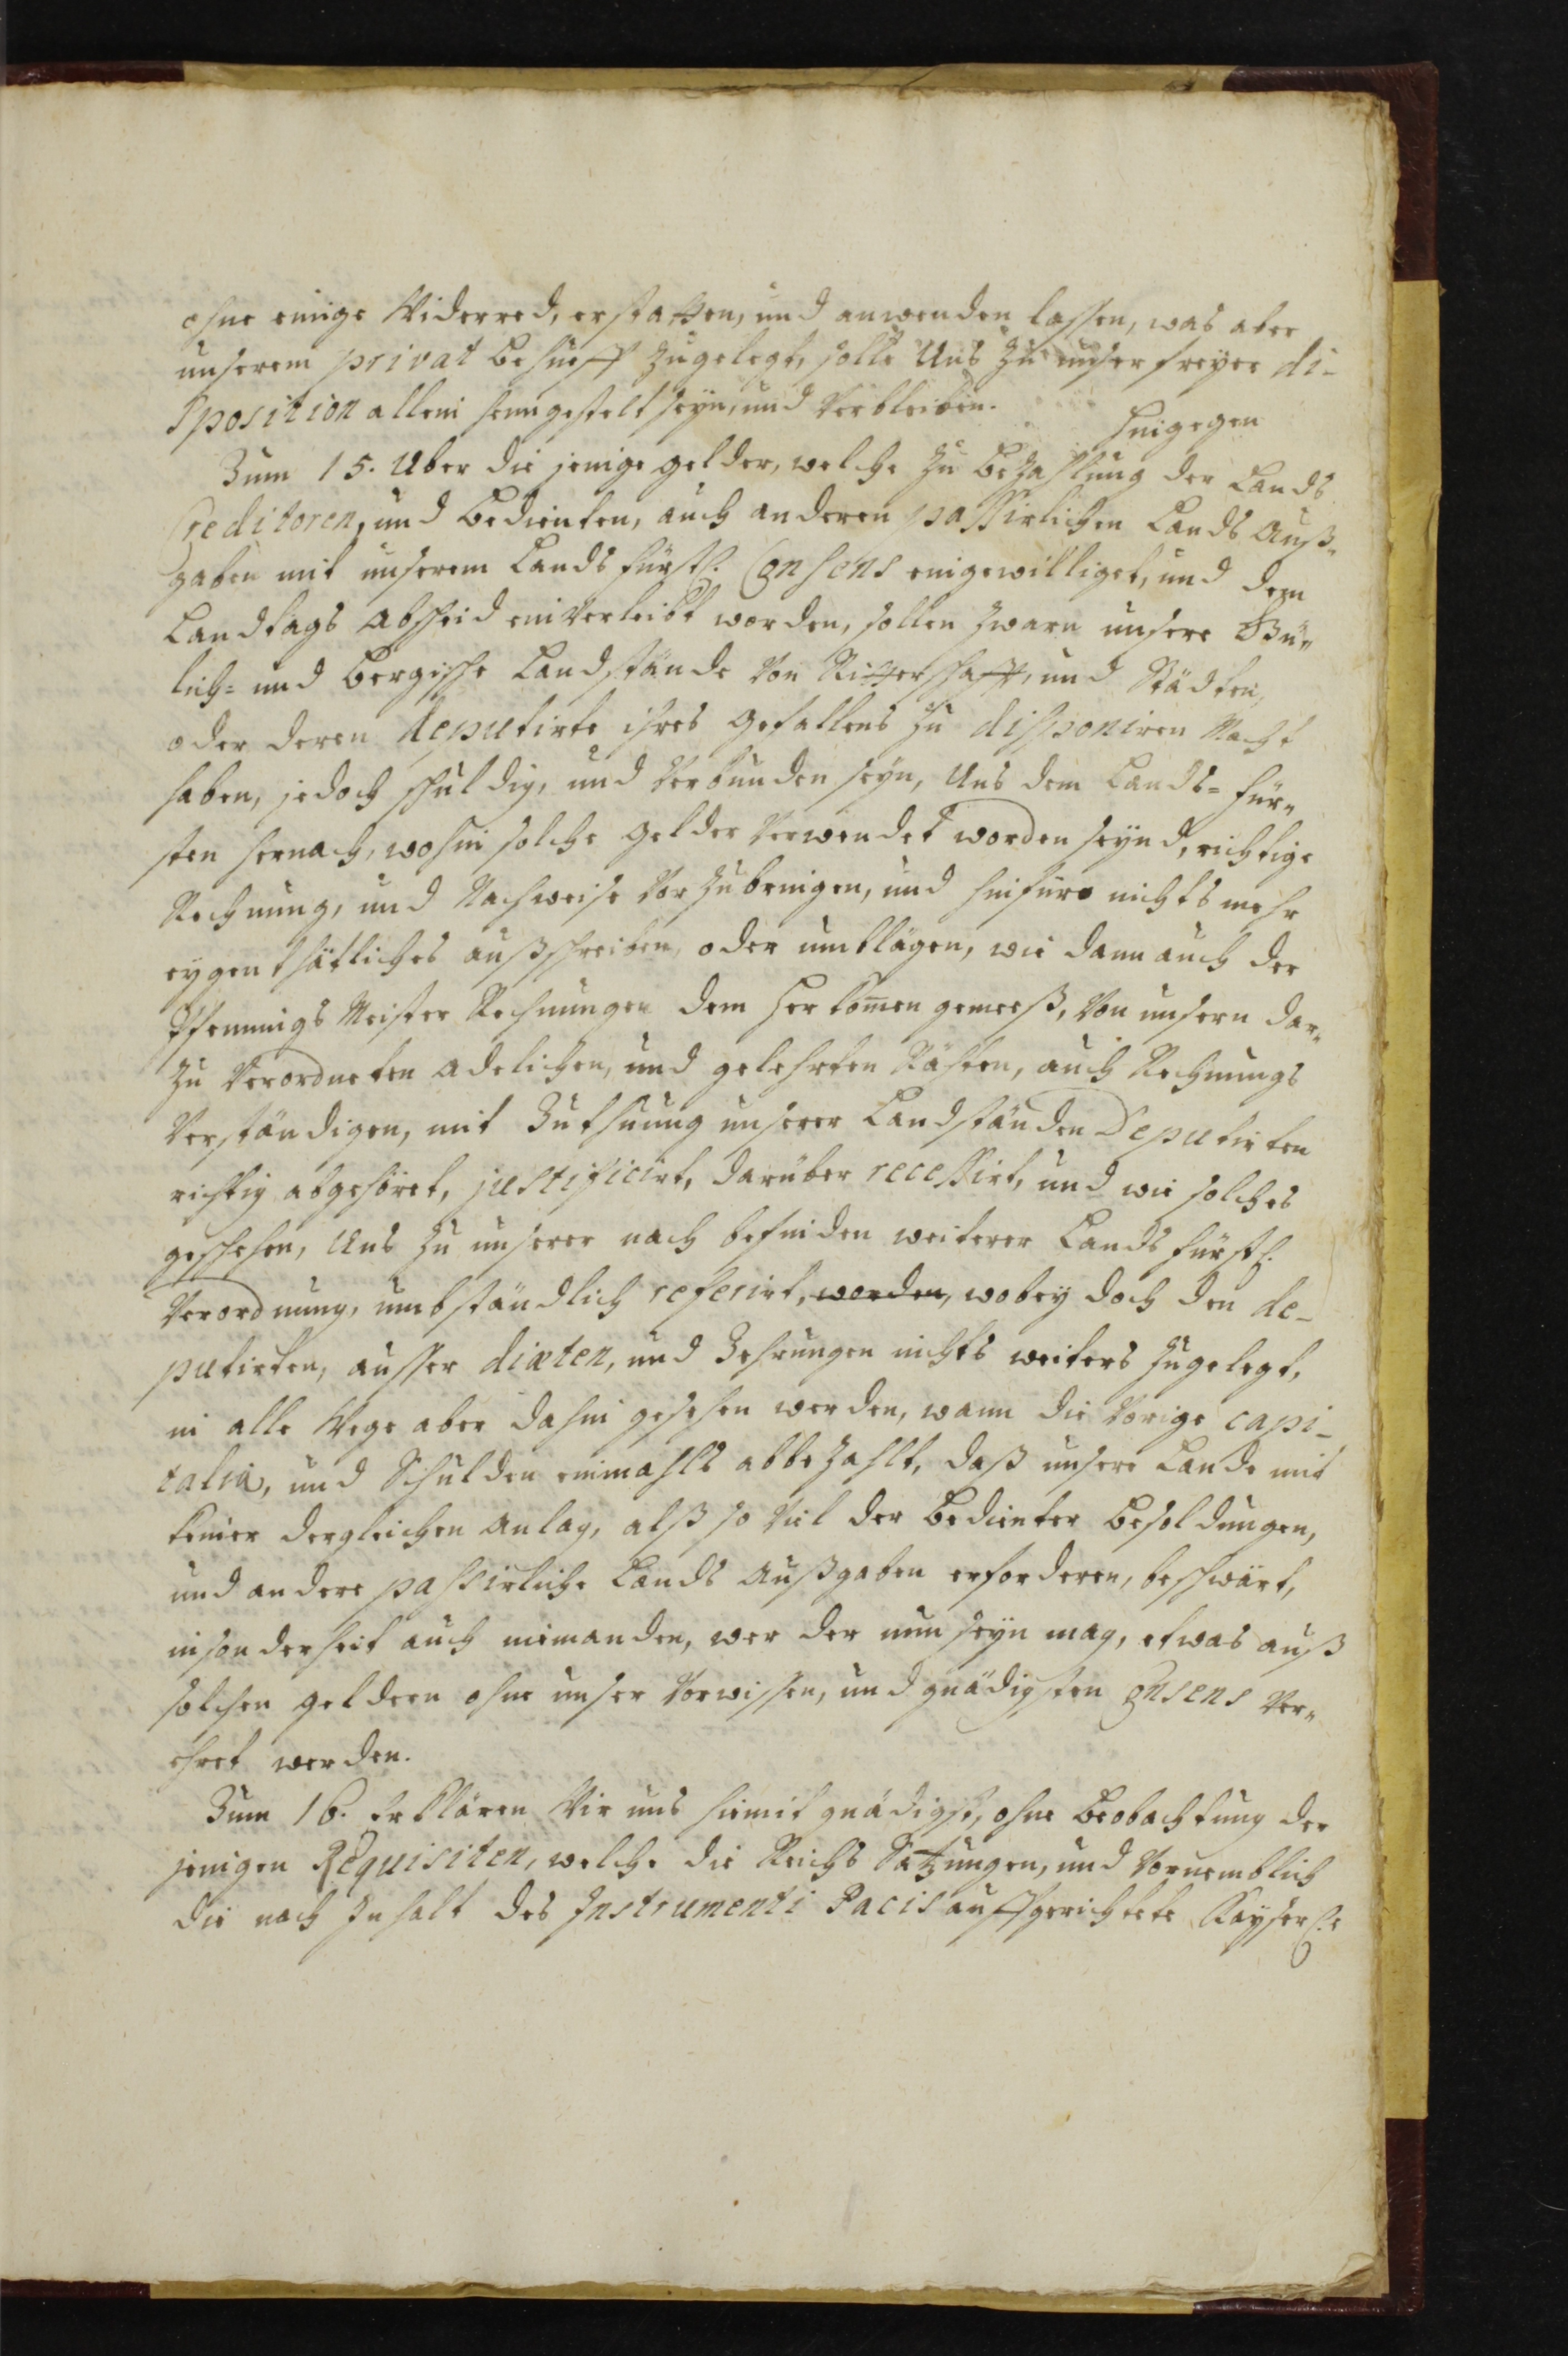 ohne einige Widerred, erstatten, und anwenden lassen, was aber
unserem privat behueff zugelegt, solle Uns zu unser freyer di-
sposition allein heimgestelt seyn, und verbleiben.
hingegen
Zum 15. Uber die jenige gelder, welche zu bezahlung der Lands
Creditoren, und bedienten, auch anderen passirlichen Lands Auß-
gaben mit unserem Landsfürstl. Consens eingewilliget, und dem
Landtags Abscheid einverleibt worden, sollen zwarn unsere Gü-
lich- und Bergische Landstände von Ritterschafft, und Städten,
oder deren deputirte ihres gefallens zu disponiren Macht
haben, jedoch schuldig, und verbunden seyn, Uns dem Lands-Für-
sten hernach, wohin solche gelder verwendet worden seynd, richtige
Rechnung, und Nachweise vorzubringen, und hinfüro nichts mehr
eygenthätliches außschreiben, oder umblägen, wie dann auch der
Pfennings Meister Rechnungen dem herkom̄en gemeeß, von unsern dar-
zu verordneten adelichen, und gelehrten Räthen, auch Rechnungs
verständigen, mit Zuthuung unserer Landständen Deputirten
richtig abgehöret, justificirt, darüber recessirt, und wie solches
geschehen, Uns zu unserer nach befinden weiterer Lands fürstl.
Verordnung, umbständlich referirt, worden, wobey doch den de-
putirten, ausser diæten, und Zehrungen nichts weiters zugelegt,
in alle Wege aber dahin gesehen werden, wann die vorige capi-
talia, und Schulden einmahls abbezahlt, daß unsere Lande mit
keiner dergleichen anlag, alß so viel der bedienter besoldungen,
und andere passirliche Lands Außgaben erforderen, beschwärt,
insonderheit auch niemanden, wer der nun seyn mag, etwas auß
solchen geldern ohne unser Vorwissen, und gnädigsten Consens ver-
ehret werden.
Zum 16. Erklären Wir uns hiemit gnädigst, ohne beobachtung der
jenigen Requisiten, welche die Reichs Satzungen, und vornemblich
die nach Inhalt des Instrumenti Pacis auffgerichtete Kayserl.e